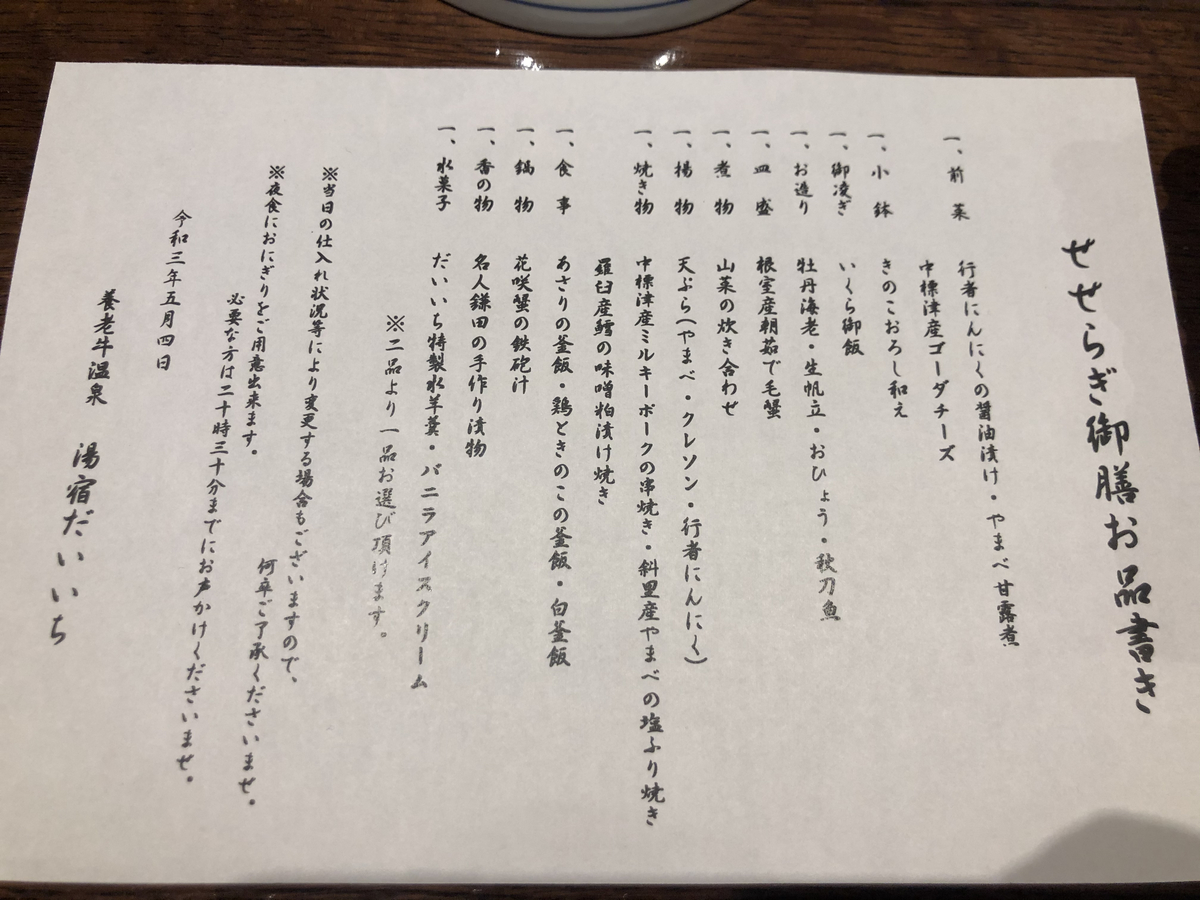 せせらぎ御膳お品書き
一、前菜 行者にんにくの醤油漬け・やまべ甘露煮
中標津産ゴーダチーズ
一、小鉢 きのこおろし和え
一、御凌ぎ いくら御飯
一、お造り 牡丹海老・生帆立・おひょう・秋刀魚
一、皿盛 根室産朝茹で毛蟹
一、煮物 山菜の炊き合わせ
一、揚物 天ぷら(やまべ・クレソン・行者にんにく)
一、焼き物 中標津産ミルキーポークの串焼き・斜里産やまべの塩ふり焼き
羅臼産鱈の味噌粕漬け焼き
一、食事 あさりの釜飯・鶏ときのこの釜飯・白釜飯
一、鍋物 花咲蟹の鉄砲汁
一、香の物 名人鎌田の手作り漬物
一、水菓子 だいいち特製水羊羹・バニラアイスクリーム
※二品より一品お選び頂けます。
※当日の仕入れ状況等により変更する場合もございますので、
何卒ご了承くださいませ。
※夜食におにぎりをご用意出来ます。
必要な方は二十時三十分までにお声かけくださいませ。
令和三年五月四日
養老牛温泉 湯宿だいいち